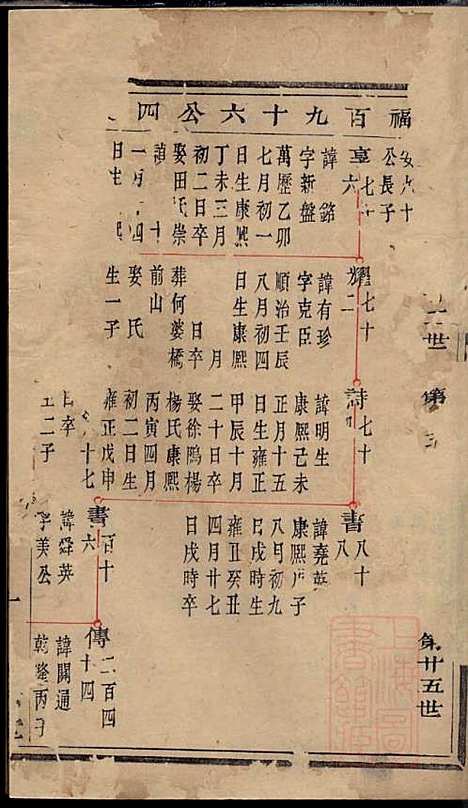 福百九十六公四
公長子
諱銘
字新盤
萬歷乙卯
七月初一
日生康熙
丁未三月
初二日卒
娶田氏崇
耀二七十
諱有珍
字克臣
順治壬辰
八月初四
日生康熙
月
日卒
葬何婆橋
前山
娶 氏
生一子
詩 七十
諱明生
康熙己未
正月十五
日生雍正
甲辰十月
二十日卒
娶徐鴎楊
楊氏康熙
丙寅四月
初二日生
雍正戊申
十七
日卒
二子
書八 八十
諱堯英
康熙 子
八月初九
日戌時生
雍丑癸丑
四月廿七
日戌時卒
書六 百十
諱舜英
字美公
傳十四 二百四
諱開通
乾隆丙子
世 第
第廿五世